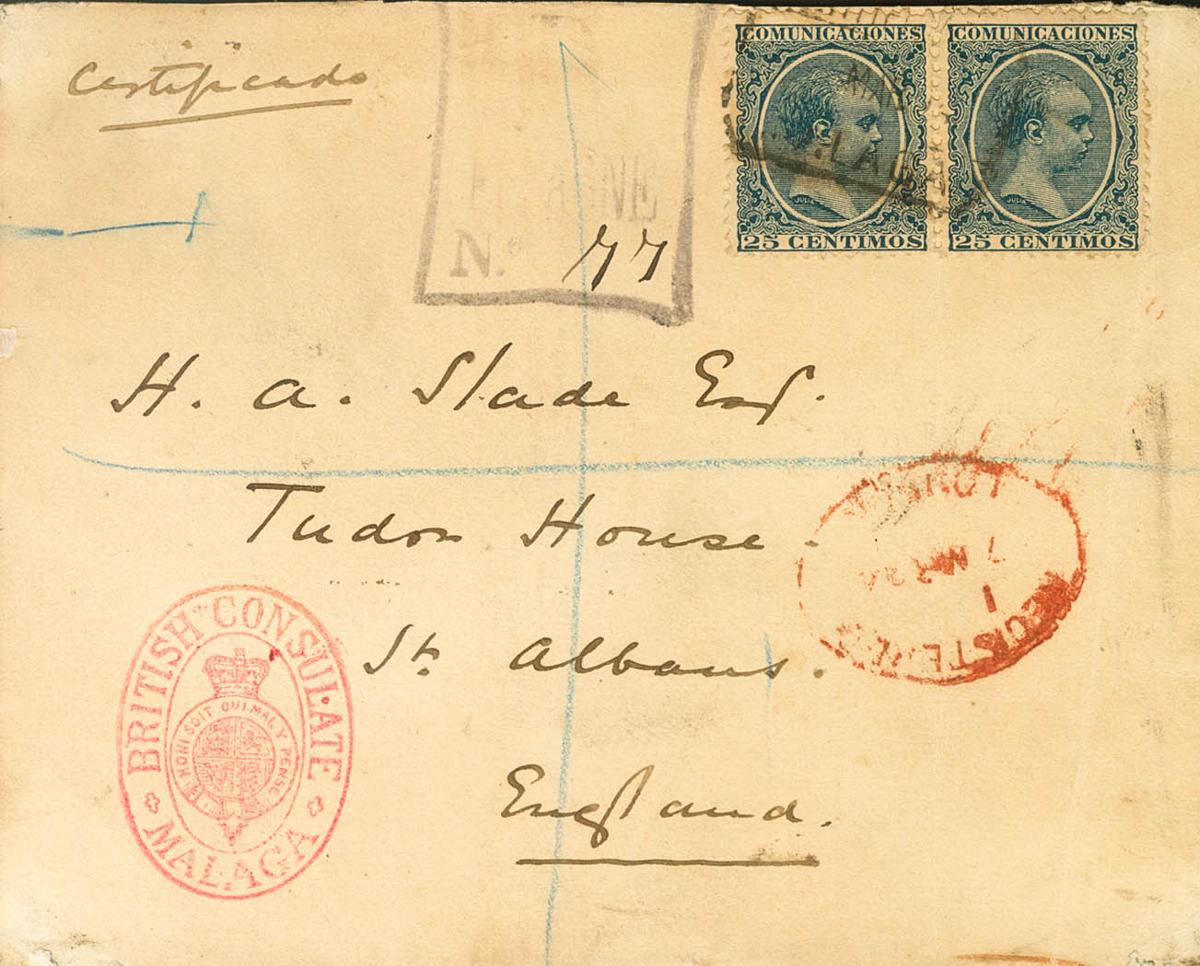 Certificado
COMUNICACIONES
25 CENTIMOS
COMUNICACIONES
25 CENTIMOS
N.º 77
H. A. Slade Esq.
Tudor House.
St. Albans.
England.
BRITISH CONSULATE
MALAGA
HONI SOIT QUI MAL Y PENSE
REGISTERED
7 MR
1